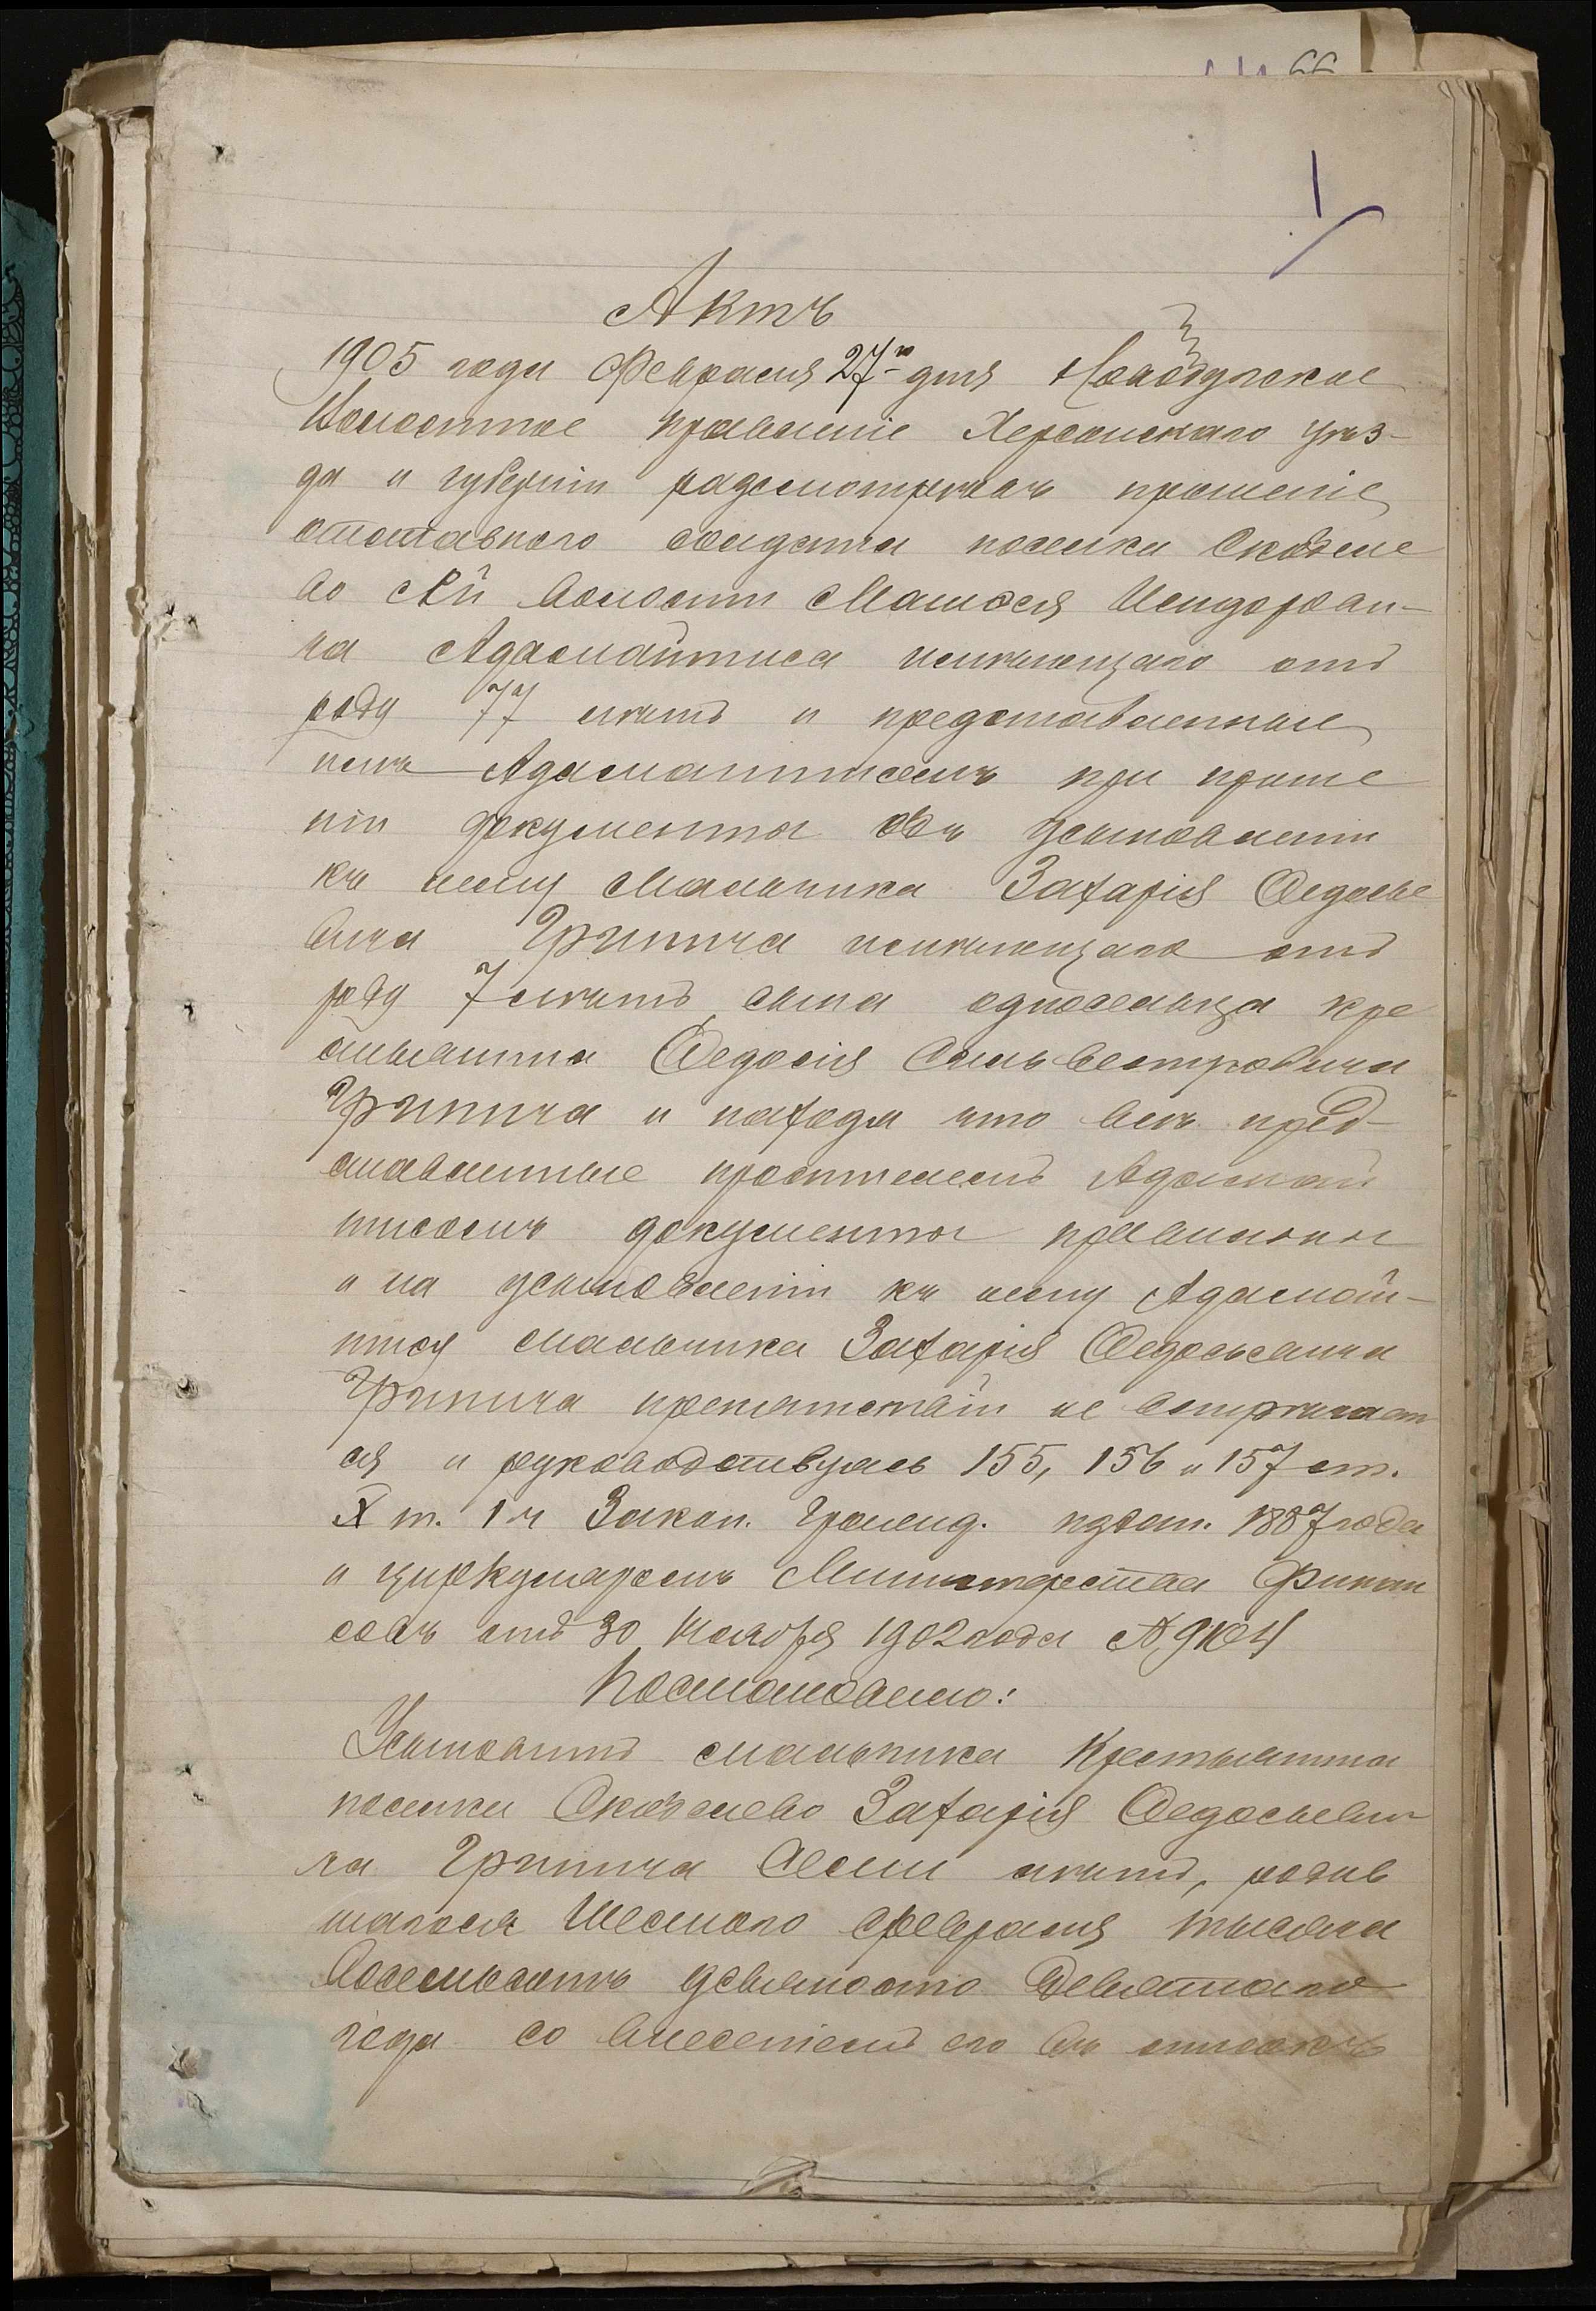 66
1
Актъ
1905 года Февраля 27-го дня Новобугское
Волостное правленіе Херсонскаго уѣз-
да и губерніи разсмотрѣвъ прошеніе
отставного солдата поселка Скобеле
во сей волости Моисея Исидорови-
ча Адамайтиса имѣющаго отъ
роду 77 лѣтъ и представленные
имъ Адамайтисомъ при проше
ніи документы объ усыновленіи
къ нему мальчика Захарія Ѳедосье
вича Гринича имѣющаго отъ
роду 7 лѣтъ, сына односельца кре
стьянина Ѳедосія Сильвестровича
Гринича и находя что всѣ пред-
ставленные просителемъ Адамай
тисомъ документы правильны
и на усыновленіи къ нему Адамай-
тису мальчика Захарія Ѳедосьевича
Гринича препятствій не встрѣчает
ся и руководствуясь 155, 156 и 157 ст.
X т. 1 ч Закон. Гражд. издан. 1887 года
и циркуляромъ Министерства Финан
совъ отъ 30 Ноября 1902 года №
Постановлено:
Усыновить мальчика крестьянина
поселка Скобелево Захарія Ѳедосьеви
ча Гринича семи лѣтъ, родив
шагося Шестого февраля тысяча
восемьсотъ девяносто девятаго
года со внесеніемъ его въ списокъ